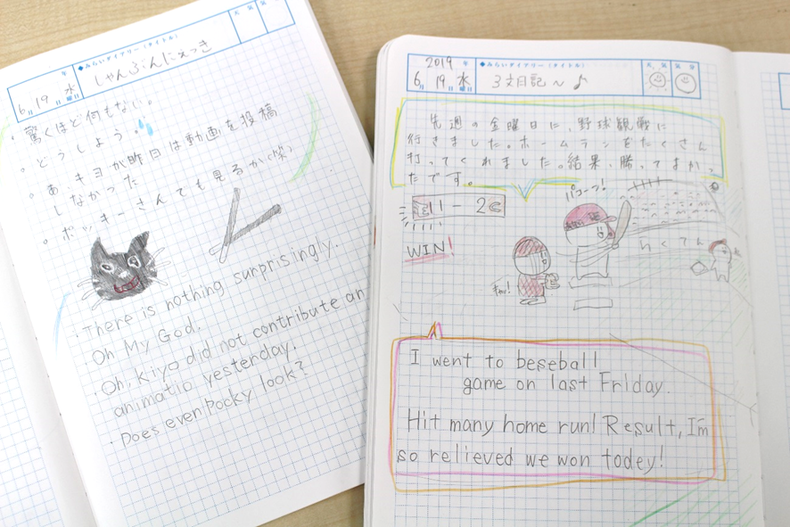 ◆みらいダイアリー(タイトル)
年
6月19日水
しゃんぷんにっき
天 気
驚くほど何もない。
・どうしよう。
・あ、キヨが昨日は動画を投稿
しなかった
・ポッキーさんでも見るか(笑)
・There is nothing surprisingly.
Oh My God.
・Oh, Kiyo did not contribute an
animatio yesterday.
・Does even Pocky look?
2019年
6月19日水
◆みらいダイアリー(タイトル)
3文日記〜♪
天 気 気 分
先週の金曜日に、野球観戦に
行きました。ホームランをたくさん
打ってくれました。結果、勝ってよかっ
たです。
パコーン!
11-2
WIN!
らくてん
I went to beseball
game on last Friday.
Hit many home run! Result, I'm
so relieved we won today!